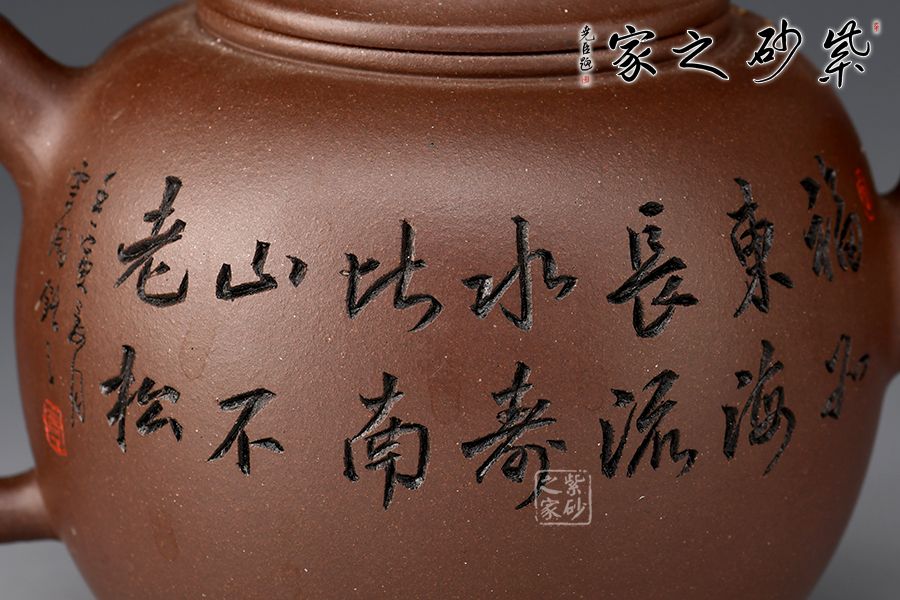 紫砂之家
堯臣題
福如
東海
長流
水壽
比南
山不
老松
紫砂
之家